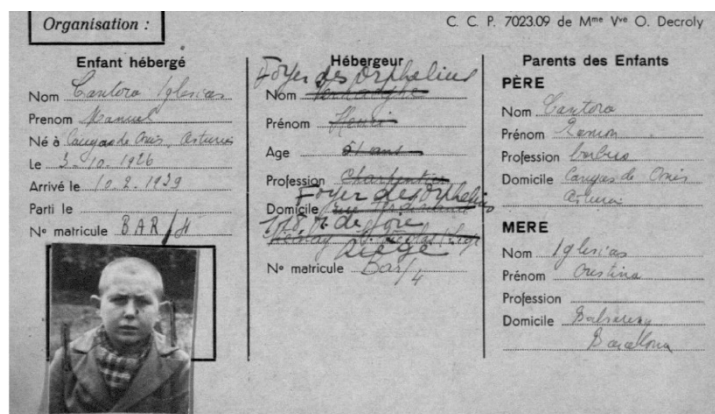 Organisation :
C. C. P. 7023.09 de Mme Vve O. Decroly
Enfant hébergé
Nom Cantora Iglesias
Prenom Manuel
Né à Cangas de Onis, Asturias
Le 3-10-1926
Arrivé le 10.2.1939
Parti le
No matricule BAR/4
Hébergeur
Foyer des Orphelins
Nom
Prénom Henri
Age 51 ans
Profession Charpentier
Foyer des Orphelins
Domicile
de Joie
Liège
No matricule Bar/4
Parents des Enfants
PÈRE
Nom Cantora
Prénom Ramon
Profession
Domicile Cangas de Onis
Asturias
MERE
Nom Iglesias
Prénom Cristina
Profession
Domicile
Barcelona